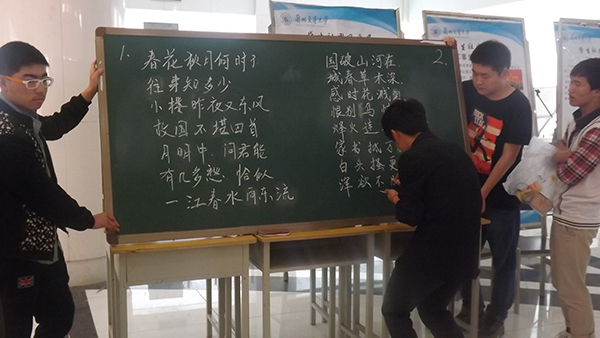 1.
春花秋月何时了
往事知多少
小楼昨夜又东风
故国不堪回首
月明中.问君能
有几多愁.恰似
一江春水向东流
2.
国破山河在
城春草木深
感时花溅
恨别鸟
烽火连
家书抵万
白头搔更
欲不